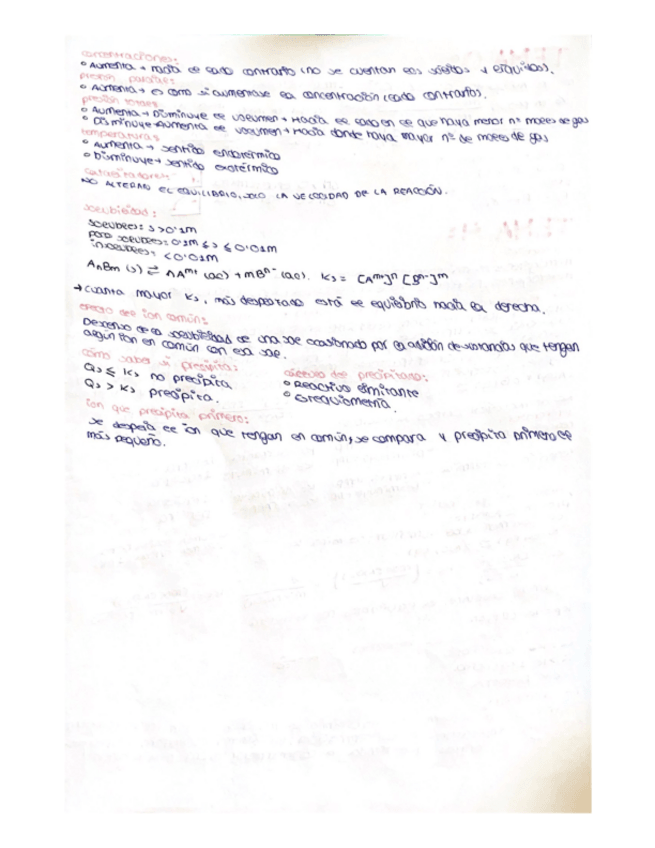 concentraciones:
° Aumenta → hacia el lado contrario (no se cuentan los sólidos y líquidos).
presión parcial:
° Aumenta → es como si aumentase la concentración (lado contrario).
presión total:
° Aumenta → Disminuye el volumen → Hacia el lado en el que haya menor nº moles de gas
° Disminuye → Aumenta el volumen → Hacia donde haya mayor nº de moles de gas
temperatura:
° Aumenta → sentido endotérmico
° Disminuye → sentido exotérmico
catalizadores:
NO ALTERAN EL EQUILIBRIO, SOLO LA VELOCIDAD DE LA REACCIÓN.
solubilidad:
solubles: s > 0'1M
poco solubles: 0'1M ≤ s ≤ 0'01M
insolubles: < 0'01M
AnBm (s) ⇌ nA^m+ (ac) + mB^n- (ac). Ks = [A^m+]^n [B^n-]^m
→ cuanta mayor Ks, más desplazado está el equilibrio hacia la derecha.
efecto del ion común:
Descenso de la solubilidad de una sal ocasionado por la adición de sustancias que tengan
algún ion en común con esa sal.
cómo saber si precipita:
Qs ≤ Ks no precipita
Qs > Ks precipita.
cálculo del precipitado:
° Reactivo limitante
° Estequiometría.
ion que precipita primero:
se despeja el ion que tengan en común, se compara y precipita primero el
más pequeño.